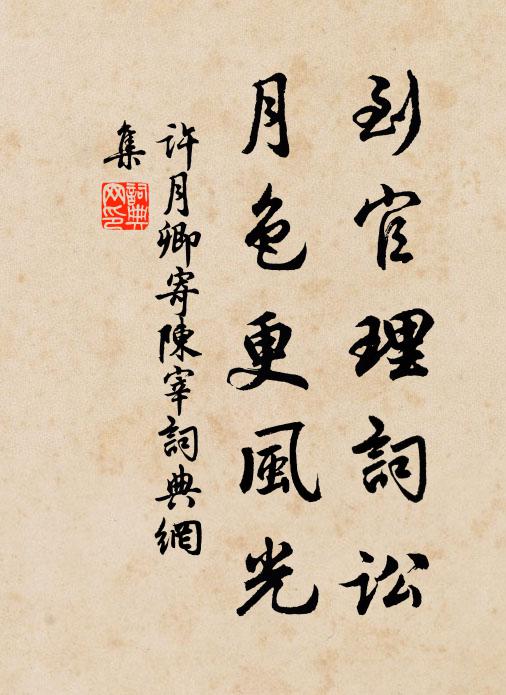 到官理詞訟
月色更風光
許月卿寄陳宰詞典網
集
詞典
网印